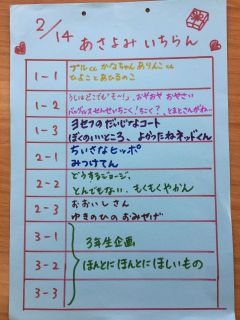 2/14
あさよみ いちらん
1-1
プルα かなちゃん ありんこα
ひよことあひるのこ
1-2
うしはどこでも「モ〜!」、おやおや おやさい
バッグルスせんせいちこく!ちこく?、とまとさんがね…
1-3
ヨセフのだいじなコート
ぼくのいいところ、よかったねネッドくん
2-1
ちいさなヒッポ
みつけてん
2-2
どうするジョージ、
とんでもない、もくもくやかん
2-3
おおいしさん
ゆきのひの おみやげ
3-1
3年生企画
3-2
ほんとにほんとにほしいもの
3-3